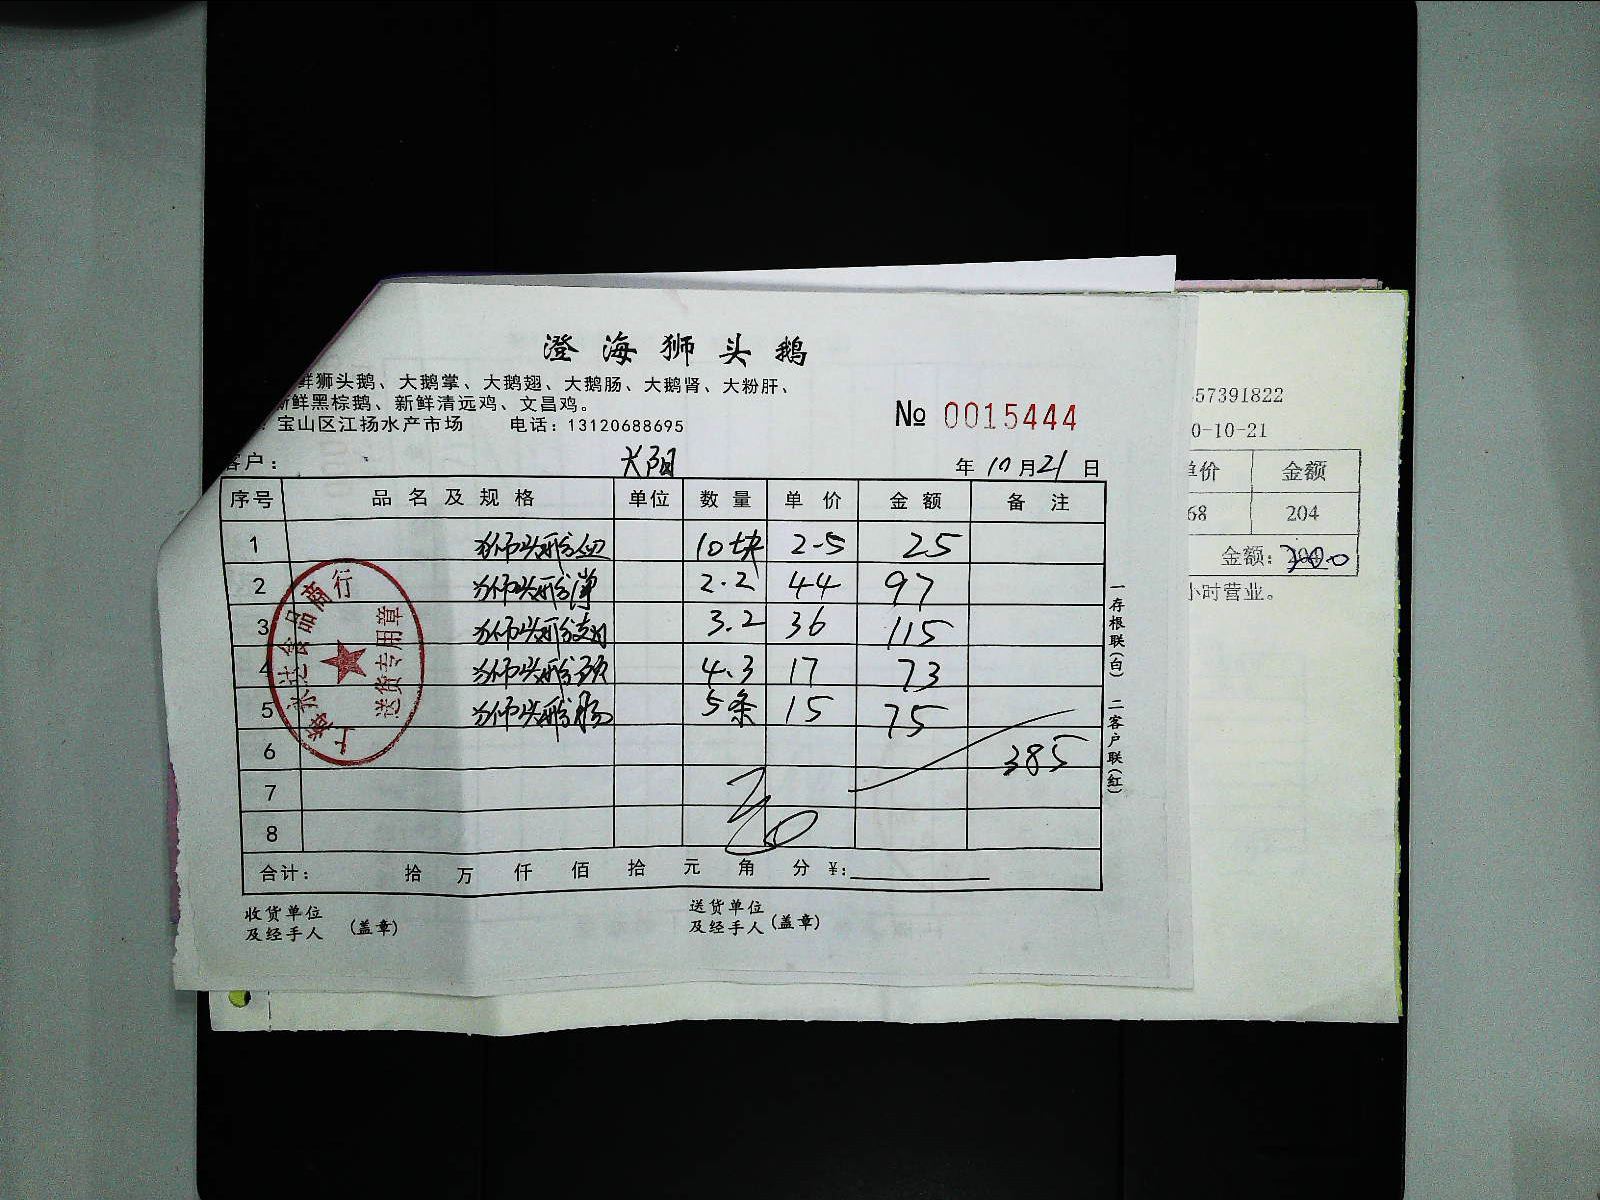 澄海狮头鹅
鲜狮头鹅、大鹅掌、大鹅翅、大鹅肠、大鹅肾、大粉肝、
新鲜黑棕鹅、新鲜清远鸡、文昌鸡。
宝山区江扬水产市场 电话：13120688695
№ 0015444
客户： 年 10 月 21 日
序号 品名及规格 单位 数量 单价 金额 备注
1 狮头鹅血 10块 2-5 25
2 狮头鹅 2.2 44 97
3 狮头鹅翅 3.2 36 115
4 狮头鹅颈 4.3 17 73
5 狮头鹅肠 5条 15 75
6 385
7
8
合计： 拾 万 仟 佰 拾 元 角 分 ¥：
收货单位
及经手人 （盖章）
送货单位
及经手人（盖章）
一存根联（白） 二客户联（红）
送货专用章
57391822
0-10-21
单价 金额
68 204
金额：
小时营业。